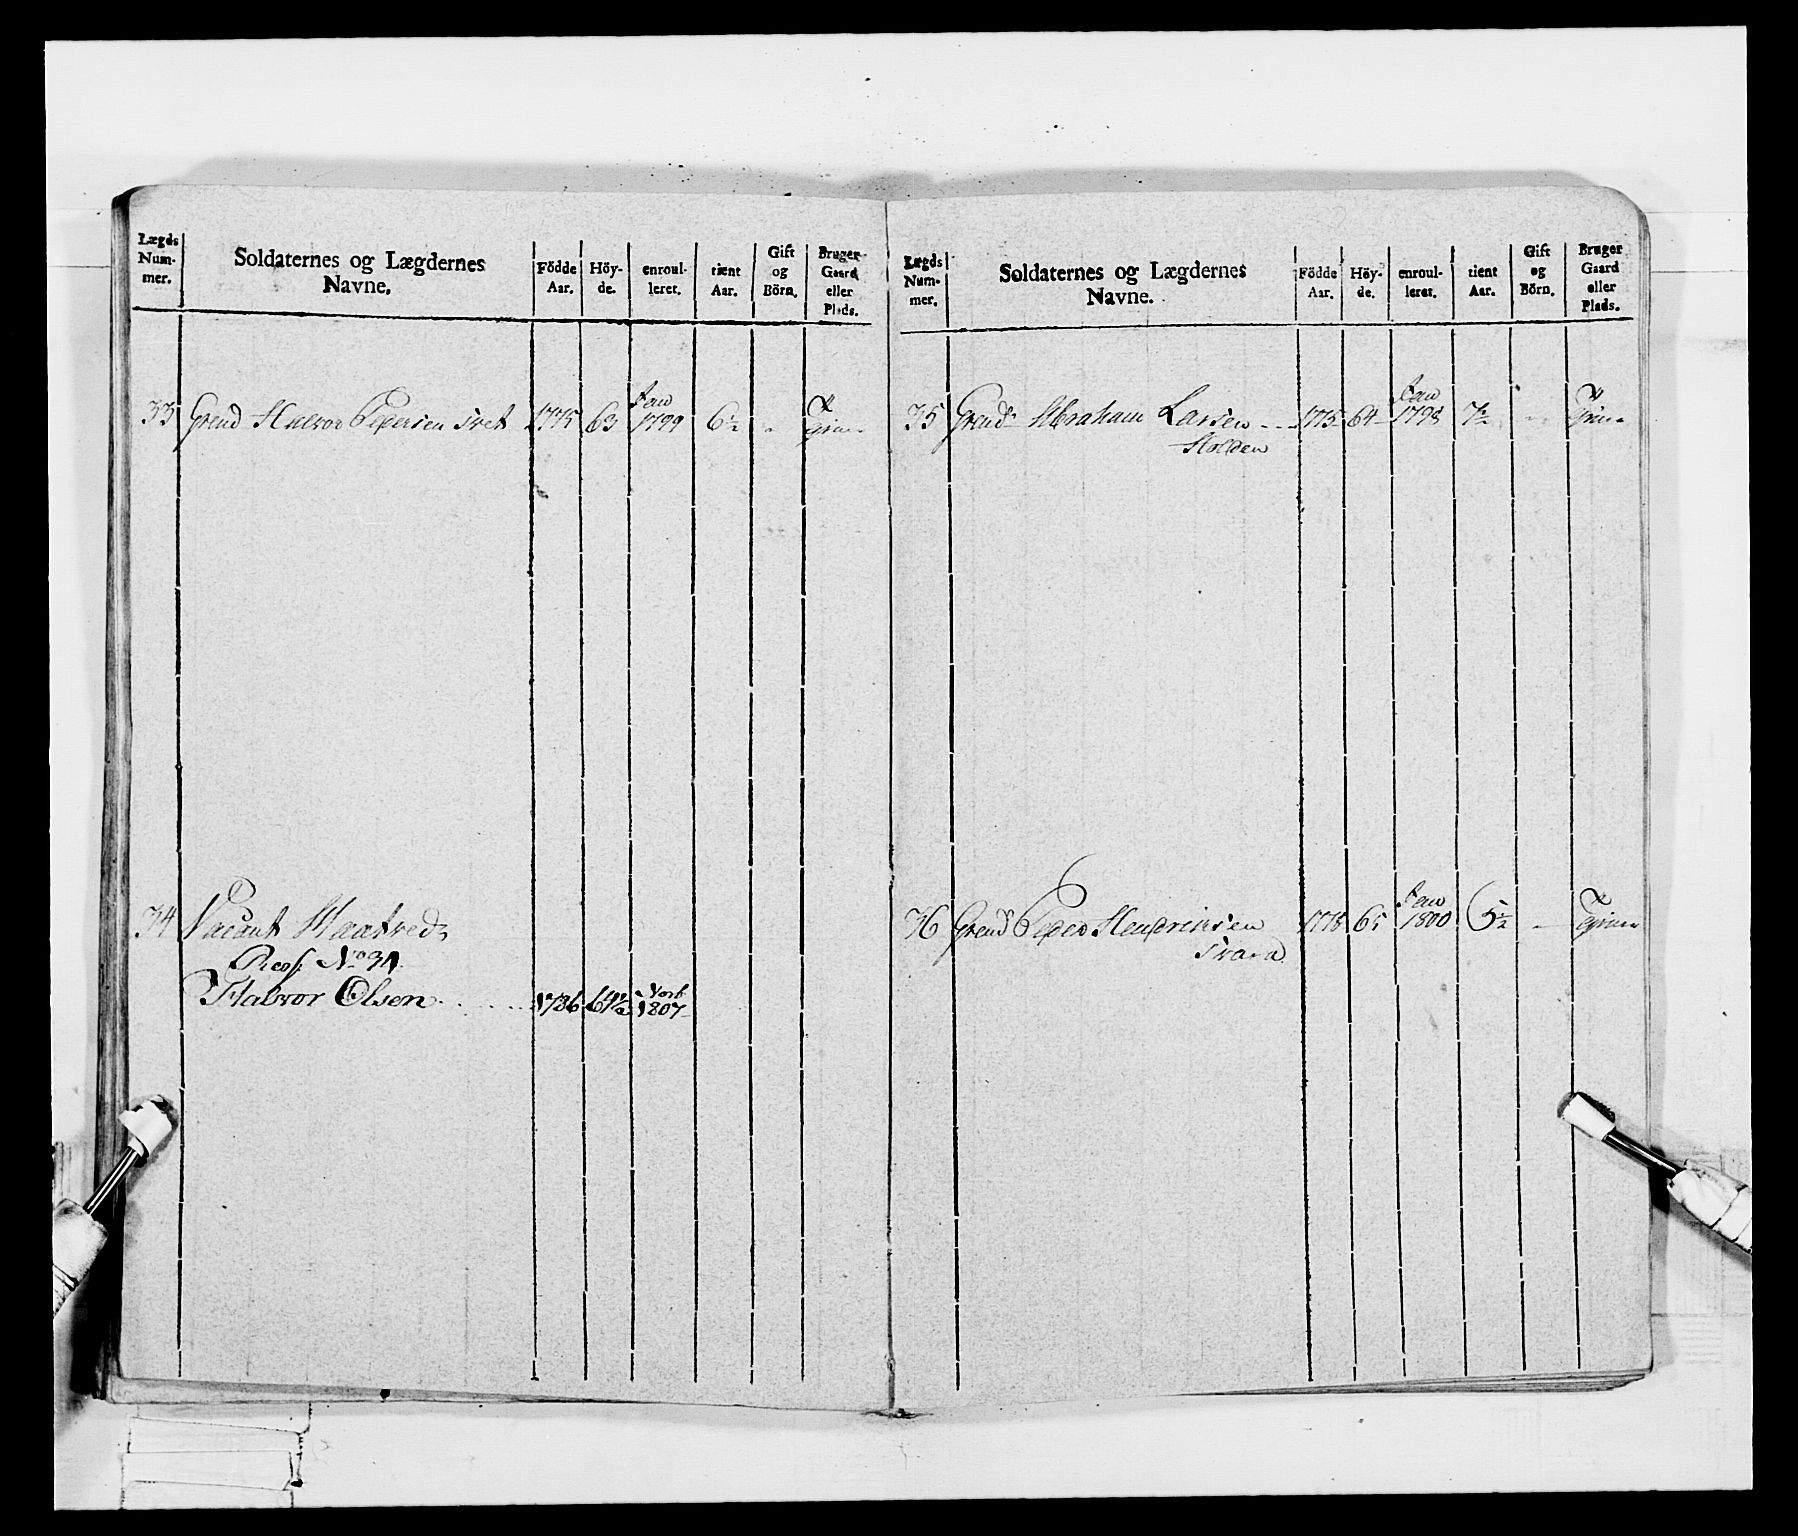 Lægds Num- mer.
Soldaternes og Lægdernes Navne.
Födde Aar.
Höy- de.
enroul- leret.
tient Aar.
Gift og Börn.
Bruger Gaard eller Plads.
33 Grend Halvor Pedersen 1775 63 Jan 1799 6½ -
34 Vacant
No 34
Halvor Olsen 1786 61½ 1807
Lægds Num- mer.
Soldaternes og Lægdernes Navne.
Födde Aar.
Höy- de.
enroul- leret.
tient Aar.
Gift og Börn.
Bruger Gaard eller Plads.
35 Grend Abraham Larsen 1775 64 Jan 1798 7½ -
Holden
36 Grend Peder Hendrichsen 1778 65 Jan 1800 5½ -